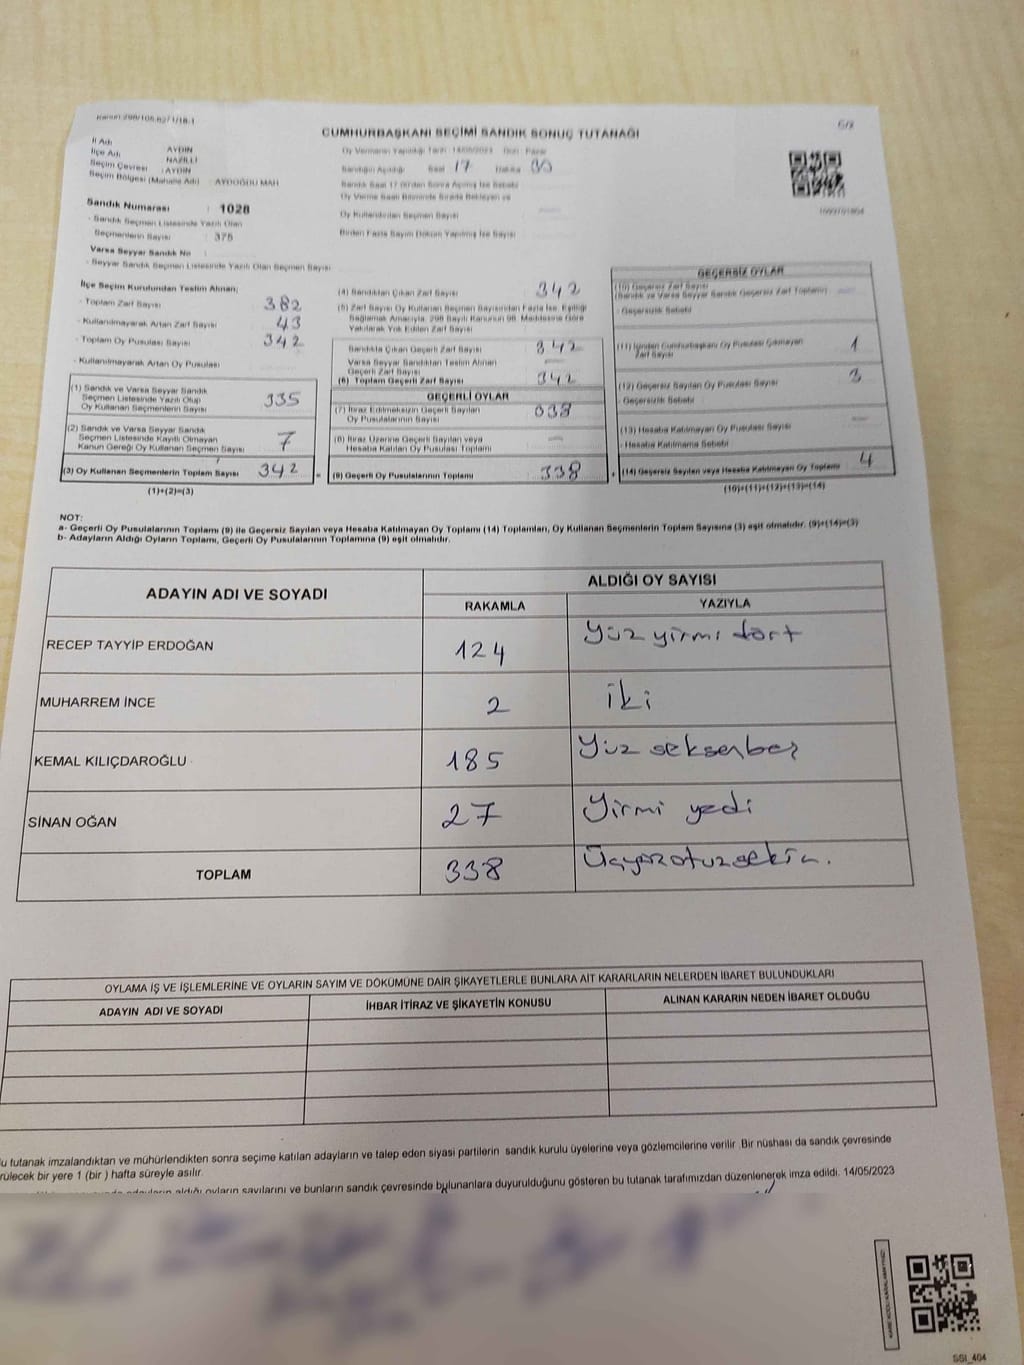 Kanun:298/105,6271/18-1
CUMHURBAŞKANI SEÇİMİ SANDIK SONUÇ TUTANAĞI
İl Adı AYDIN
İlçe Adı NAZİLLİ
Seçim Çevresi : AYDIN
Seçim Bölgesi (Mahalle Adı) : AYDOĞDU MAH
Sandık Numarası : 1028
- Sandık Seçmen Listesinde Yazılı Olan
Seçmenlerin Sayısı : 375
Varsa Seyyar Sandık No :
- Seyyar Sandık Seçmen Listesinde Yazılı Olan Seçmen Sayısı
Oy Vermenin Yapıldığı Tarih 14/05/2023 Gün: Pazar
Sandığın Açıldığı Saat 17 Dakika 30
Sandık Saat 17:00'den Sonra Açılmış İse Sebebi
Oy Verme Saati Bitiminde Sırada Bekleyen ve
Oy Kullandırılan Seçmen Sayısı
Birden Fazla Sayım Döküm Yapılmış İse Sayısı
İlçe Seçim Kurulundan Teslim Alınan;
- Toplam Zarf Sayısı 382
- Kullanılmayarak Artan Zarf Sayısı 43
- Toplam Oy Pusulası Sayısı 342
- Kullanılmayarak Artan Oy Pusulası
(1) Sandık ve Varsa Seyyar Sandık
Seçmen Listesinde Yazılı Olup
Oy Kullanan Seçmenlerin Sayısı 335
(2) Sandık ve Varsa Seyyar Sandık
Seçmen Listesinde Kayıtlı Olmayan
Kanun Gereği Oy Kullanan Seçmen Sayısı 7
(3) Oy Kullanan Seçmenlerin Toplam Sayısı 342 =
(1)+(2)=(3)
(4) Sandıktan Çıkan Zarf Sayısı 342
(5) Zarf Sayısı Oy Kullanan Seçmen Sayısından Fazla İse, Eşitliği
Sağlamak Amacıyla, 298 Sayılı Kanunun 98. Maddesine Göre
Yakılarak Yok Edilen Zarf Sayısı
Sandıkta Çıkan Geçerli Zarf Sayısı 342
Varsa Seyyar Sandıktan Teslim Alınan
Geçerli Zarf Sayısı
(6) Toplam Geçerli Zarf Sayısı 342
GEÇERLİ OYLAR
(7) İtiraz Edilmeksizin Geçerli Sayılan
Oy Pusulalarının Sayısı 038
(8) İtiraz Üzerine Geçerli Sayılan veya
Hesaba Katılan Oy Pusulası Toplamı
(9) Geçerli Oy Pusulalarının Toplamı 338 +
GEÇERSİZ OYLAR
(10) Geçersiz Zarf Sayısı
(Sandık ve Varsa Seyyar Sandık Geçersiz Zarf Toplamı)
- Geçersizlik Sebebi
(11) İçinden Cumhurbaşkanı Oy Pusulası Çıkmayan
Zarf Sayısı 1
(12) Geçersiz Sayılan Oy Pusulası Sayısı 3
- Geçersizlik Sebebi
(13) Hesaba Katılmayan Oy Pusulası Sayısı
- Hesaba Katılmama Sebebi
(14) Geçersiz Sayılan veya Hesaba Katılmayan Oy Toplamı 4
(10)+(11)+(12)+(13)=(14)
NOT:
a- Geçerli Oy Pusulalarının Toplamı (9) ile Geçersiz Sayılan veya Hesaba Katılmayan Oy Toplamı (14) Toplamları, Oy Kullanan Seçmenlerin Toplam Sayısına (3) eşit olmalıdır. (9)+(14)=(3)
b- Adayların Aldığı Oyların Toplamı, Geçerli Oy Pusulalarının Toplamına (9) eşit olmalıdır.
ADAYIN ADI VE SOYADI ALDIĞI OY SAYISI
RAKAMLA YAZIYLA
RECEP TAYYİP ERDOĞAN 124 Yüz yirmi dört
MUHARREM İNCE 2 iki
KEMAL KILIÇDAROĞLU 185 Yüz seksenbeş
SİNAN OĞAN 27 Yirmi yedi
TOPLAM 338 Üçyüzotuzsekiz.
OYLAMA İŞ VE İŞLEMLERİNE VE OYLARIN SAYIM VE DÖKÜMÜNE DAİR ŞİKAYETLERLE BUNLARA AİT KARARLARIN NELERDEN İBARET BULUNDUKLARI
ADAYIN ADI VE SOYADI İHBAR İTİRAZ VE ŞİKAYETİN KONUSU ALINAN KARARIN NEDEN İBARET OLDUĞU
u tutanak imzalandıktan ve mühürlendikten sonra seçime katılan adayların ve talep eden siyasi partilerin sandık kurulu üyelerine veya gözlemcilerine verilir .Bir nüshası da sandık çevresinde
rülecek bir yere 1 (bir ) hafta süreyle asılır.
adayların aldığı oyların sayılarını ve bunların sandık çevresinde bulunanlara duyurulduğunu gösteren bu tutanak tarafımızdan düzenlenerek imza edildi. 14/05/2023
SSI_404